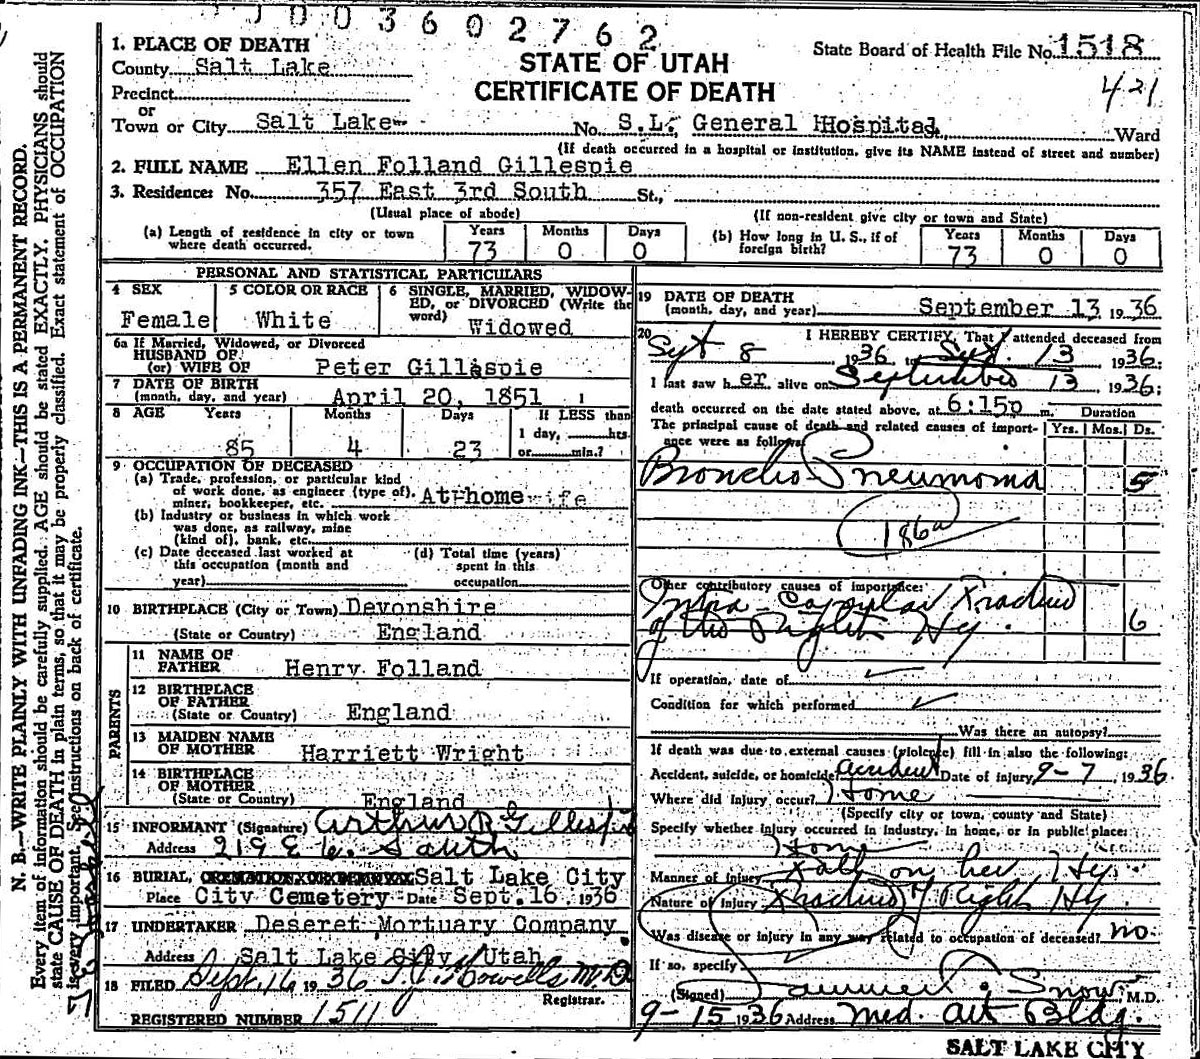 1003602762
1. PLACE OF DEATH
County Salt Lake
Precinct
or
Town or City Salt Lake
STATE OF UTAH
CERTIFICATE OF DEATH
State Board of Health File No. 1518
421
No. S.L. General Hospital Ward
(If death occurred in a hospital or institution, give its NAME instead of street and number)
2. FULL NAME Ellen Folland Gillespie
3. Residence: No. 357 East 3rd South St.,
(Usual place of abode) (If non-resident give city or town and State)
(a) Length of residence in city or town where death occurred. Years 73 Months 0 Days 0
(b) How long in U. S., if of foreign birth? Years 73 Months 0 Days 0
PERSONAL AND STATISTICAL PARTICULARS
4 SEX Female
5 COLOR OR RACE White
6 SINGLE, MARRIED, WIDOWED, or DIVORCED (Write the word) Widowed
6a If Married, Widowed, or Divorced
HUSBAND OF
(or) WIFE OF Peter Gillespie
7 DATE OF BIRTH
(month, day, and year) April 20, 1851
8 AGE Years 85 Months 4 Days 23 If LESS than 1 day, hrs. or min.?
9 OCCUPATION OF DECEASED
(a) Trade, profession, or particular kind
of work done, as engineer (type of),
miner, bookkeeper, etc. At home
(b) Industry or business in which work
was done, as railway, mine
(kind of), bank, etc.
(c) Date deceased last worked at
this occupation (month and
year)
(d) Total time (years)
spent in this
occupation
10 BIRTHPLACE (City or Town) Devonshire
(State or Country) England
PARENTS
11 NAME OF
FATHER Henry Folland
12 BIRTHPLACE
OF FATHER
(State or Country) England
13 MAIDEN NAME
OF MOTHER Harriett Wright
14 BIRTHPLACE
OF MOTHER
(State or Country) England
15 INFORMANT (Signature) Arthur R Gillespie
Address 219 E 6. South
16 BURIAL, CREMATION OR REMOVAL Salt Lake City
Place City Cemetery Date Sept. 16, 1936
17 UNDERTAKER Deseret Mortuary Company
Address Salt Lake City, Utah
18 FILED Sept. 16 1936 M.D.
Registrar.
REGISTERED NUMBER 1511
19 DATE OF DEATH
(month, day, and year) September 13 1936
20 I HEREBY CERTIFY, That I attended deceased from
Sept 8 1936 to Sept. 13 1936.
I last saw her alive on September 13 1936;
death occurred on the date stated above, at 6:15p m.
Duration
The principal cause of death and related causes of importance were as follows:
Yrs. Mos. Ds.
Broncho-Pneumonia 5
186a
Other contributory causes of importance:
Intra-Capsular Fracture
of the Right Hip. 6
If operation, date of
Condition for which performed
Was there an autopsy?
If death was due to external causes (violence) fill in also the following:
Accident, suicide, or homicide? accident Date of injury 9-7, 1936
Where did injury occur? Home
(Specify city or town, county and State)
Specify whether injury occurred in industry, in home, or in public place:
Home
Manner of injury Fall on her Hip.
Nature of injury Fracture of Right Hip
Was disease or injury in any way related to occupation of deceased? no.
If so, specify
(Signed) Snow M.D.
9-15 1936 Address Med. Art Bldg.
SALT LAKE CITY
N. B.—WRITE PLAINLY WITH UNFADING INK—THIS IS A PERMANENT RECORD.
Every item of information should be carefully supplied. AGE should be stated EXACTLY. PHYSICIANS should
state CAUSE OF DEATH in plain terms, so that it may be properly classified. Exact statement of OCCUPATION
is very important. See instructions on back of certificate.